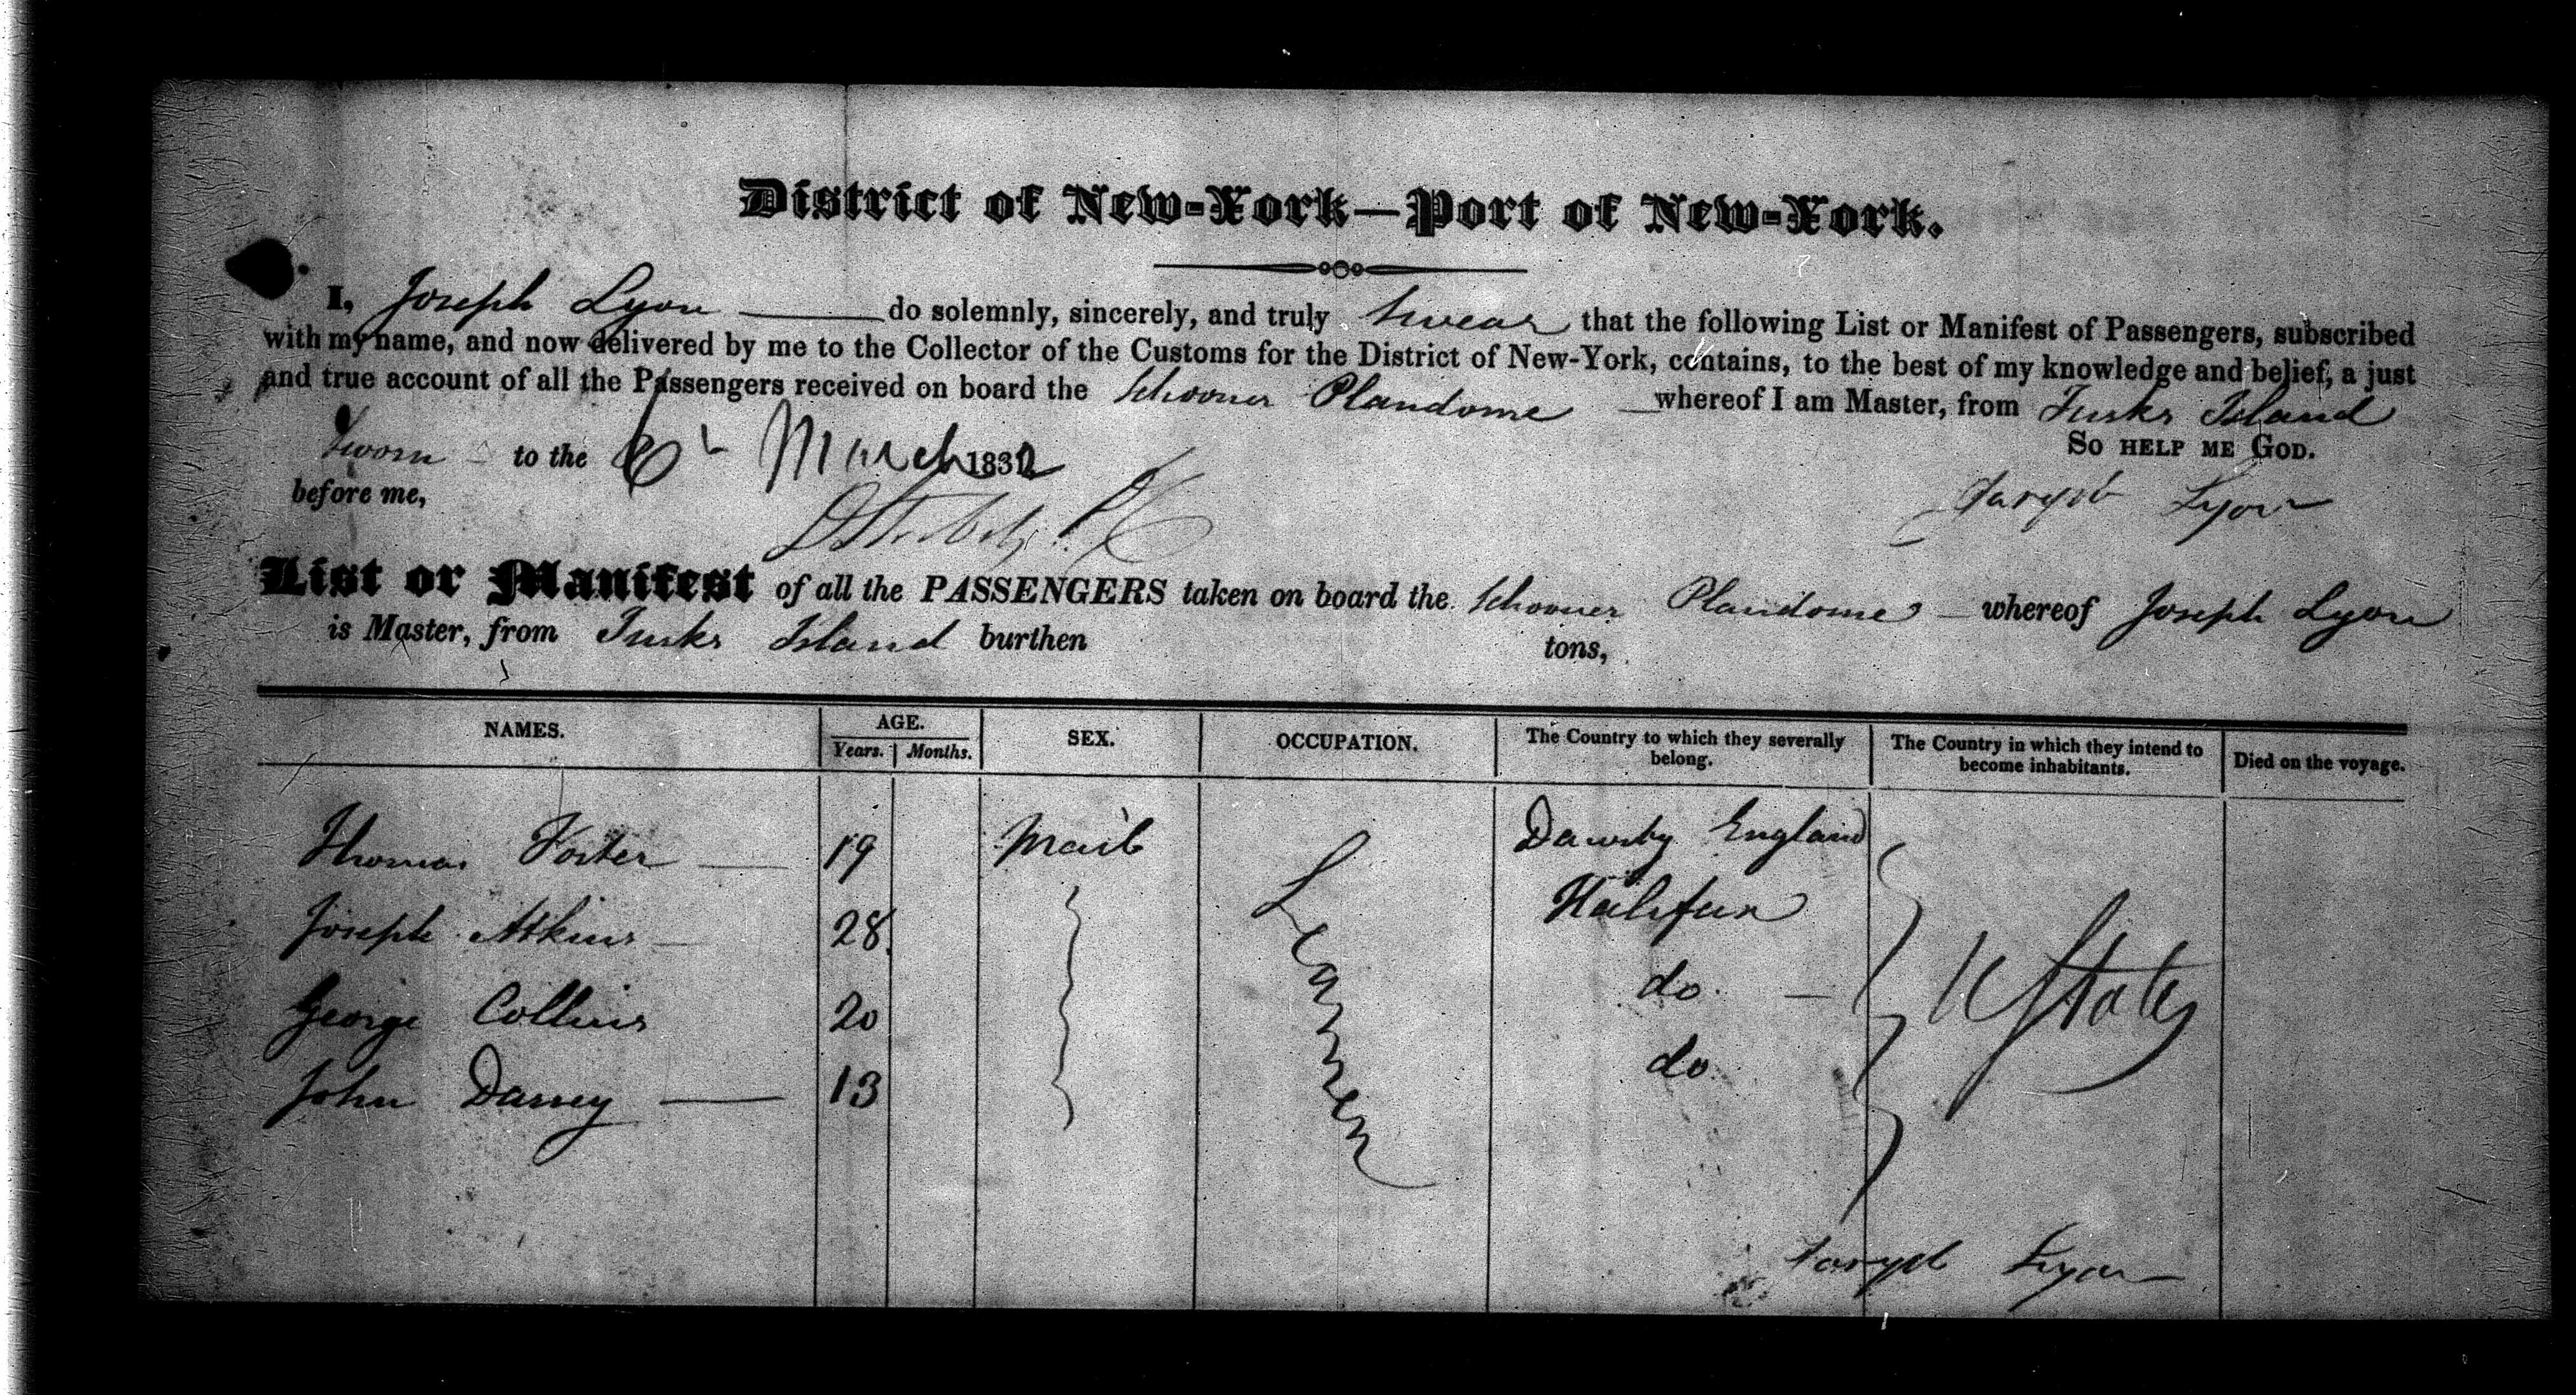 District of New-York—Port of New-York.
I, Joseph Lyon do solemnly, sincerely, and truly swear that the following List or Manifest of Passengers, subscribed
with my name, and now delivered by me to the Collector of the Customs for the District of New-York, contains, to the best of my knowledge and belief, a just
and true account of all the Passengers received on board the Schooner Plandome whereof I am Master, from Turks Island
Sworn to the 6 March 1832
So help me God.
before me,
Joseph Lyon
List or Manifest of all the PASSENGERS taken on board the Schooner Plandome whereof Joseph Lyon
is Master, from Turks Island burthen tons,
NAMES. AGE. SEX. OCCUPATION. The Country to which they severally belong. The Country in which they intend to become inhabitants. Died on the voyage.
Years. Months.
Thomas Foster 19 Mail England
Joseph Atkins 28 Halifax
George Collins 20 do
John 13 do
Seamen
U States
Joseph Lyon